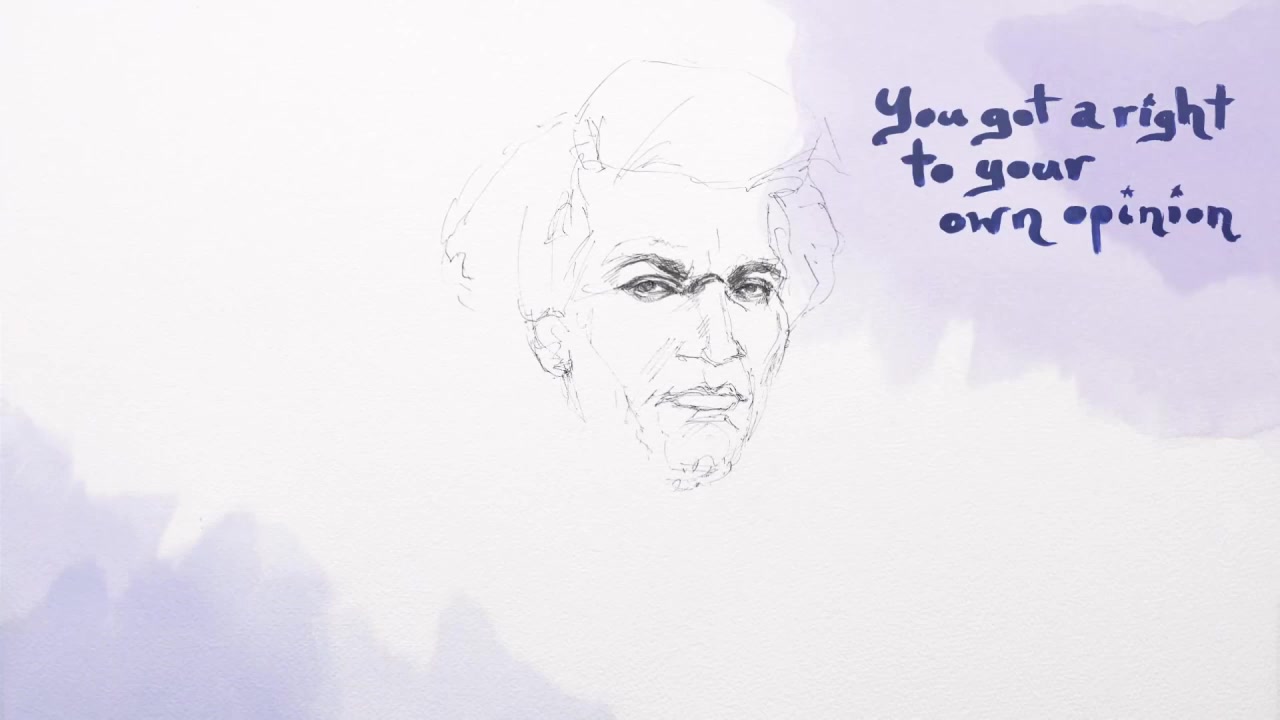 You got a right
to your
own opinion